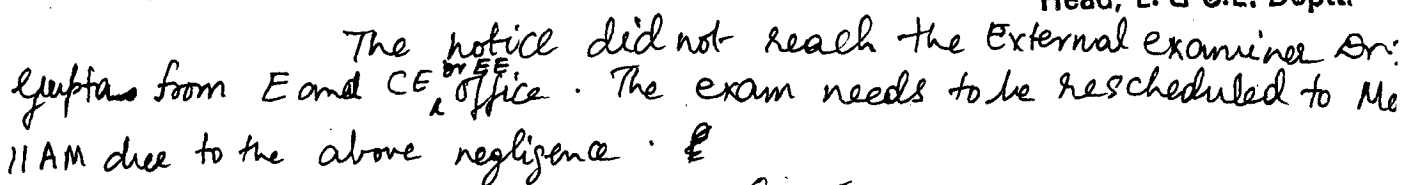 Head, E. & C.E. Deptt.
The notice did not reach the External examiner Dr.
Gupta from E and CE or EE office. The exam needs to be rescheduled to Mo
11 AM due to the above negligence.